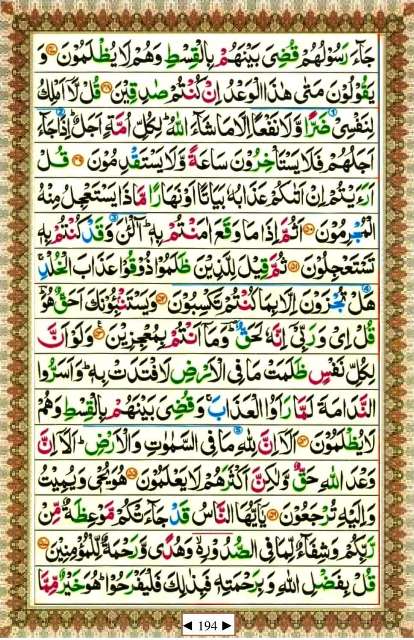 جَآءَ رَسُوْلُهُمْ قُضِیَ بَیْنَهُمْ بِالْقِسْطِ وَهُمْ لَا یُظْلَمُوْنَ ﴿۴۷﴾ وَ
یَقُوْلُوْنَ مَتٰی هٰذَا الْوَعْدُ اِنْ كُنْتُمْ صٰدِقِیْنَ ﴿۴۸﴾ قُلْ لَّاۤ اَمْلِكُ
لِنَفْسِیْ ضَرًّا وَّلَا نَفْعًا اِلَّا مَا شَآءَ اللّٰهُ ؕ لِكُلِّ اُمَّةٍ اَجَلٌ ؕ اِذَا جَآءَ
اَجَلُهُمْ فَلَا یَسْتَاْخِرُوْنَ سَاعَةً وَّلَا یَسْتَقْدِمُوْنَ ﴿۴۹﴾ قُلْ
اَرَءَیْتُمْ اِنْ اَتٰىكُمْ عَذَابُهٗ بَیَاتًا اَوْ نَهَارًا مَّاذَا یَسْتَعْجِلُ مِنْهُ
الْمُجْرِمُوْنَ ﴿۵۰﴾ اَثُمَّ اِذَا مَا وَقَعَ اٰمَنْتُمْ بِهٖ ؕ آٰلْـٰٔنَ وَقَدْ كُنْتُمْ بِهٖ
تَسْتَعْجِلُوْنَ ﴿۵۱﴾ ثُمَّ قِیْلَ لِلَّذِیْنَ ظَلَمُوْا ذُوْقُوْا عَذَابَ الْخُلْدِ ۚ
هَلْ تُجْزَوْنَ اِلَّا بِمَا كُنْتُمْ تَكْسِبُوْنَ ﴿۵۲﴾ وَیَسْتَنْۢبِـُٔوْنَكَ اَحَقٌّ هُوَ ؕ
قُلْ اِیْ وَرَبِّیْۤ اِنَّهٗ لَحَقٌّ ؕ وَمَاۤ اَنْتُمْ بِمُعْجِزِیْنَ ﴿۵۳﴾ وَلَوْ اَنَّ
لِكُلِّ نَفْسٍ ظَلَمَتْ مَا فِی الْاَرْضِ لَافْتَدَتْ بِهٖ ؕ وَاَسَرُّوا
النَّدَامَةَ لَمَّا رَاَوُا الْعَذَابَ ۚ وَقُضِیَ بَیْنَهُمْ بِالْقِسْطِ وَهُمْ
لَا یُظْلَمُوْنَ ﴿۵۴﴾ اَلَاۤ اِنَّ لِلّٰهِ مَا فِی السَّمٰوٰتِ وَالْاَرْضِ ؕ اَلَاۤ اِنَّ
وَعْدَ اللّٰهِ حَقٌّ وَّلٰكِنَّ اَكْثَرَهُمْ لَا یَعْلَمُوْنَ ﴿۵۵﴾ هُوَ یُحْیٖ وَیُمِیْتُ
وَاِلَیْهِ تُرْجَعُوْنَ ﴿۵۶﴾ یٰۤاَیُّهَا النَّاسُ قَدْ جَآءَتْكُمْ مَّوْعِظَةٌ مِّنْ
رَّبِّكُمْ وَشِفَآءٌ لِّمَا فِی الصُّدُوْرِ ۙ وَهُدًی وَّرَحْمَةٌ لِّلْمُؤْمِنِیْنَ ﴿۵۷﴾
قُلْ بِفَضْلِ اللّٰهِ وَبِرَحْمَتِهٖ فَبِذٰلِكَ فَلْیَفْرَحُوْا ؕ هُوَ خَیْرٌ مِّمَّا
◄ 194 ►